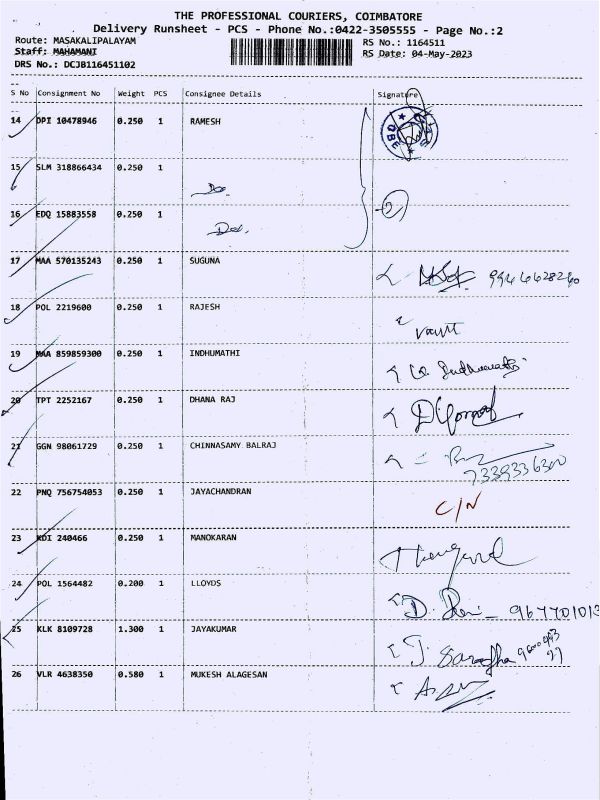 THE PROFESSIONAL COURIERS, COIMBATORE
Delivery Runsheet - PCS - Phone No.:0422-3505555 - Page No.:2
Route: MASAKALIPALAYAM
RS No.: 1164511
Staff: MAHAMANI
RS Date: 04-May-2023
DRS No.: DCJB116451102
S No Consignment No Weight PCS Consignee Details Signature
14 DPI 10478946 0.250 1 RAMESH
15 SLM 318866434 0.250 1
16 EDQ 15883558 0.250 1
17 MAA 570135243 0.250 1 SUGUNA
18 POL 2219600 0.250 1 RAJESH
19 MAA 859859300 0.250 1 INDHUMATHI
20 TPT 2252167 0.250 1 DHANA RAJ
21 GGN 98061729 0.250 1 CHINNASAMY BALRAJ
7339336300
22 PNQ 756754053 0.250 1 JAYACHANDRAN C/N
23 KDI 240466 0.250 1 MANOKARAN
24 POL 1564482 0.200 1 LLOYDS
25 KLK 8109728 1.300 1 JAYAKUMAR
26 VLR 4638350 0.580 1 MUKESH ALAGESAN